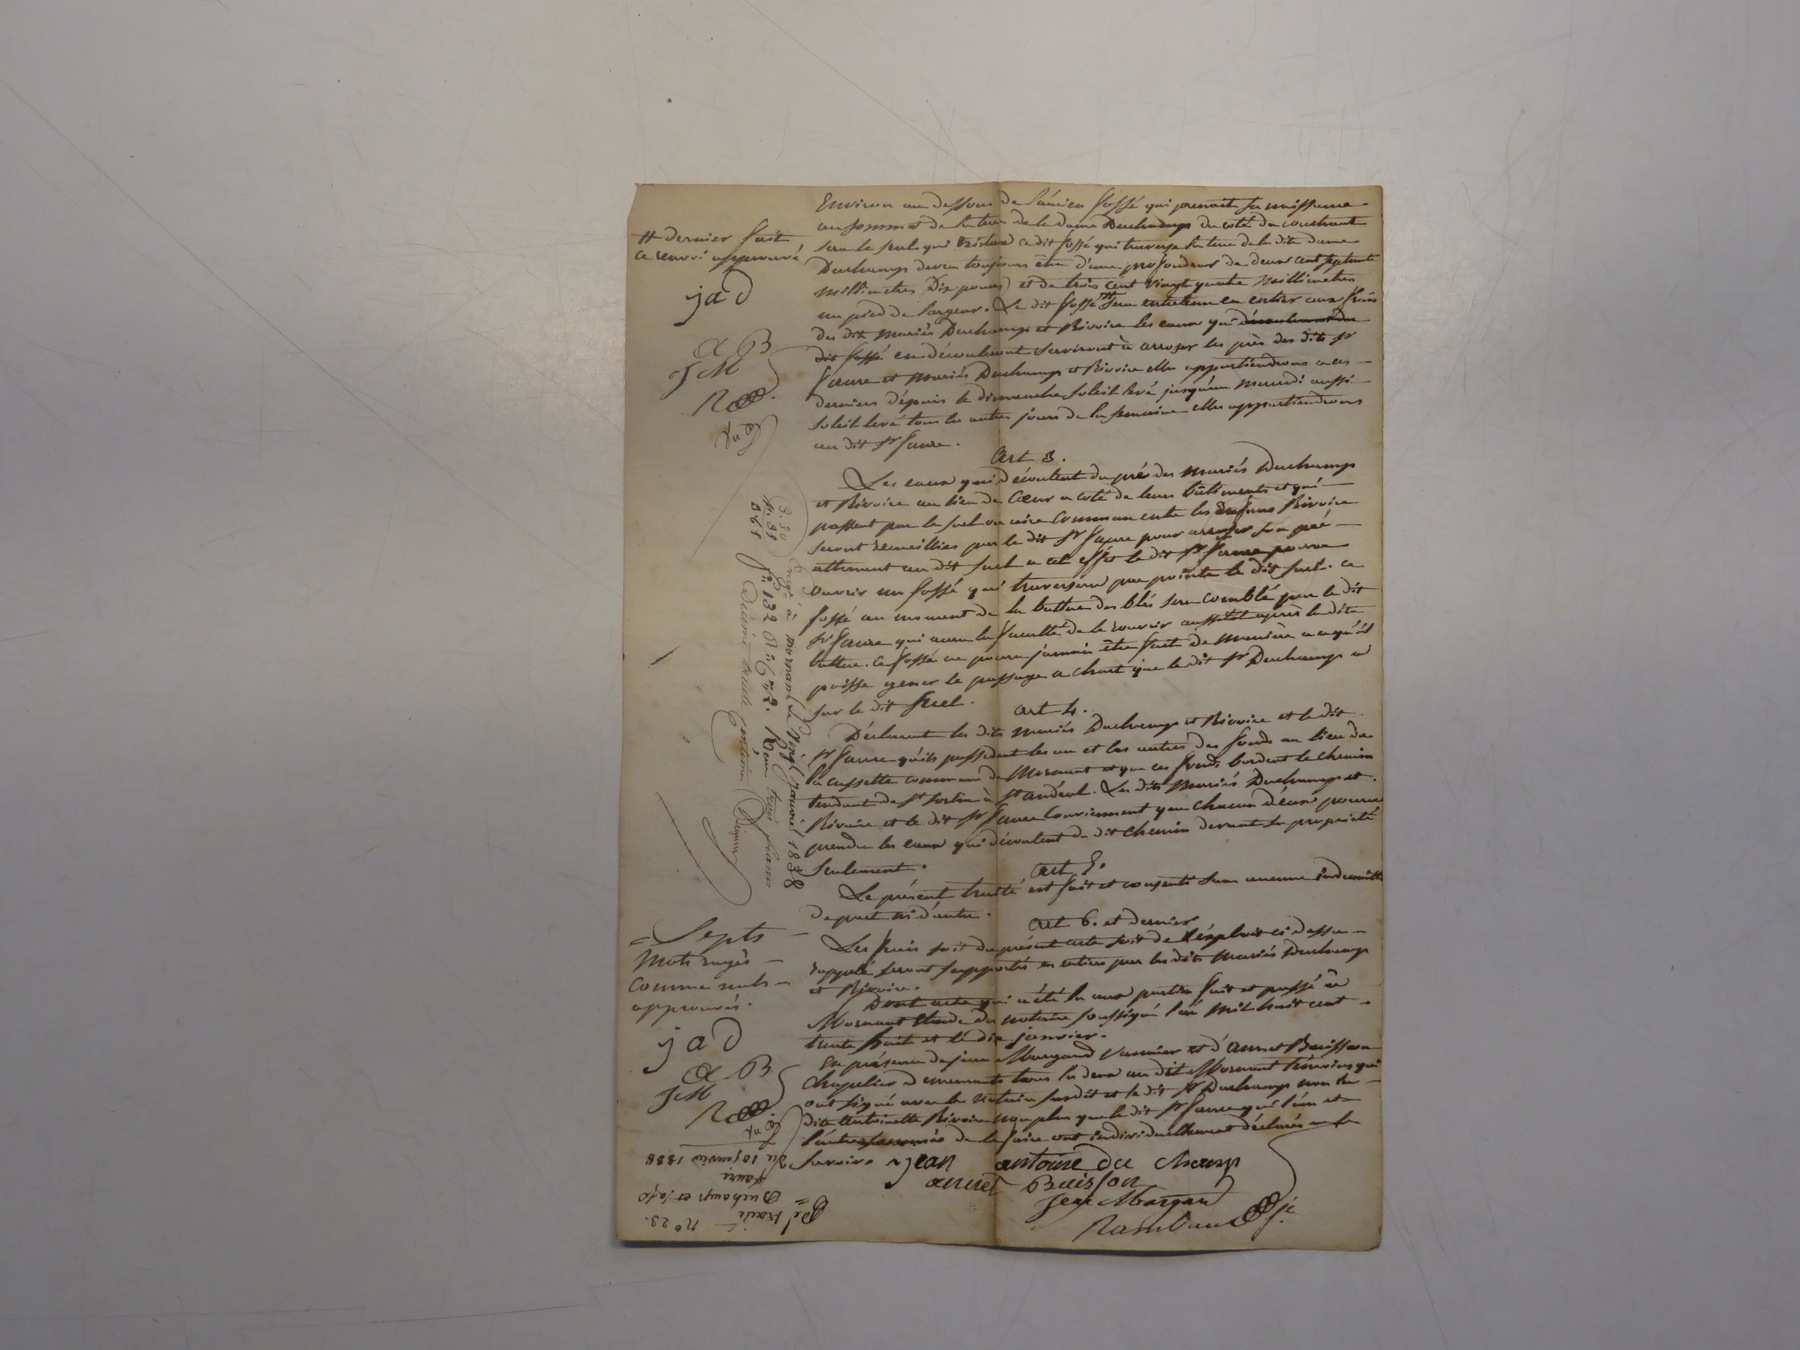 Environ au dessous de l'ancien fossé qui prenoit sa naissance
au sommet de la terre de la dame Duchamp du coté du couchant
sera le seul qui existera ce dit fossé qui traverse la terre de la dite dame
Duchamp devra toujours être d'une profondeur de deux cent septante
millimètres (dix pouces) et de trois cent vingt quatre millimètres
un pied de largeur. Le dit fossé # sera entretenu en entier aux frais
des dits mariés Duchamp et Rivoire les eaux qui découleront du
dit fossé en découleront serviront à arroser les près des dits sr
faure et mariés Duchamp et Rivoire elles appartiendrons a ces
derniers dépuis le dimanche soleil levé jusqu'au mercredi aussi
soleil levé tous les autres jours de la semaine elles appartiendrons
au dit sr faure.
Art 3.
Les eaux qui découlent du pré des mariés Duchamp
et Rivoire au lieu de Cœur a coté de leurs bâtiments et qui
passent par le suel ou aire commun entre les Rivoire
seront recueillies par le dit sr faure pour arroser son pré
attenant au dit suel a cet effet le dit sr faure pourra
ouvrir un fossé qui traversera par pointe le dit suel. ce
fossé au moment de la battue des blés sera comblé par le dit
sr faure qui aura la faculté de le rouvrir aussitot après la dite
battue. Ce fossé ne pourra jamais être fait de manière a ce qu'il
puisse gener le passage a chart que le dit sr Duchamp a
sur le dit suel.
art 4.
Déclarent les dits mariés Duchamp et Rivoire et le dit
sr faure qu'ils possedent les uns et les autres des fonds au lieu de
la cussette commune de Mornant et que ces fonds bordent le chemin
tendant de St Sorlin à St andéol. Les dits mariés Duchamp et
Rivoire et le dit sr faure conviennent que chacun d'eux pourra
prendre les eaux qui découlent du dit chemin devant sa propriété
seulement.
art 5.
Le présent traité est fait et consenti sans aucune indemnité
de part ni d'autre.
art 6. et dernier
Les frais soit du présent acte soit de l'exploit ci dessus
rappelé seront supportés en entier par les dits mariés Duchamp
et Rivoire.
Dont acte qui a été lu aux parties fait et passé à
Mornant étude du notaire soussigné l'an mil huit cent
trente huit et le dix janvier.
En présence de jean Margand vannier et d'annet Buisson
chapelier demeurants tous les deux au dit Mornant témoins qui
ont signé avec le notaire susdit et le dit sr Duchamp non la
dite antoinette Rivoire non plus que le dit sr faure qui l'un et
l'autre de le faire ont individuellement déclarés ne le
savoir.
jean antoine du champ
annet Buisson
jean Margand
Rambaud
# dernier fait
ce renvoi approuvé
j a d
a B
J M
R
Enregt. à mornant le vingt janvier 1838
fo. 132 Ro. c. 7 et 8. Reçu trois francs
décime trente centimes
3. 30
= Septs
mots rayés
comme nuls
approuvés.
j a d
a B
J M
R
no 23.
traité
Duchamp et
faure
du 10 janvier 1838